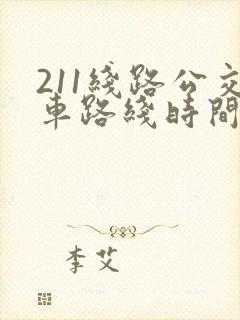 211綫路公交
車路綫時間
李艾